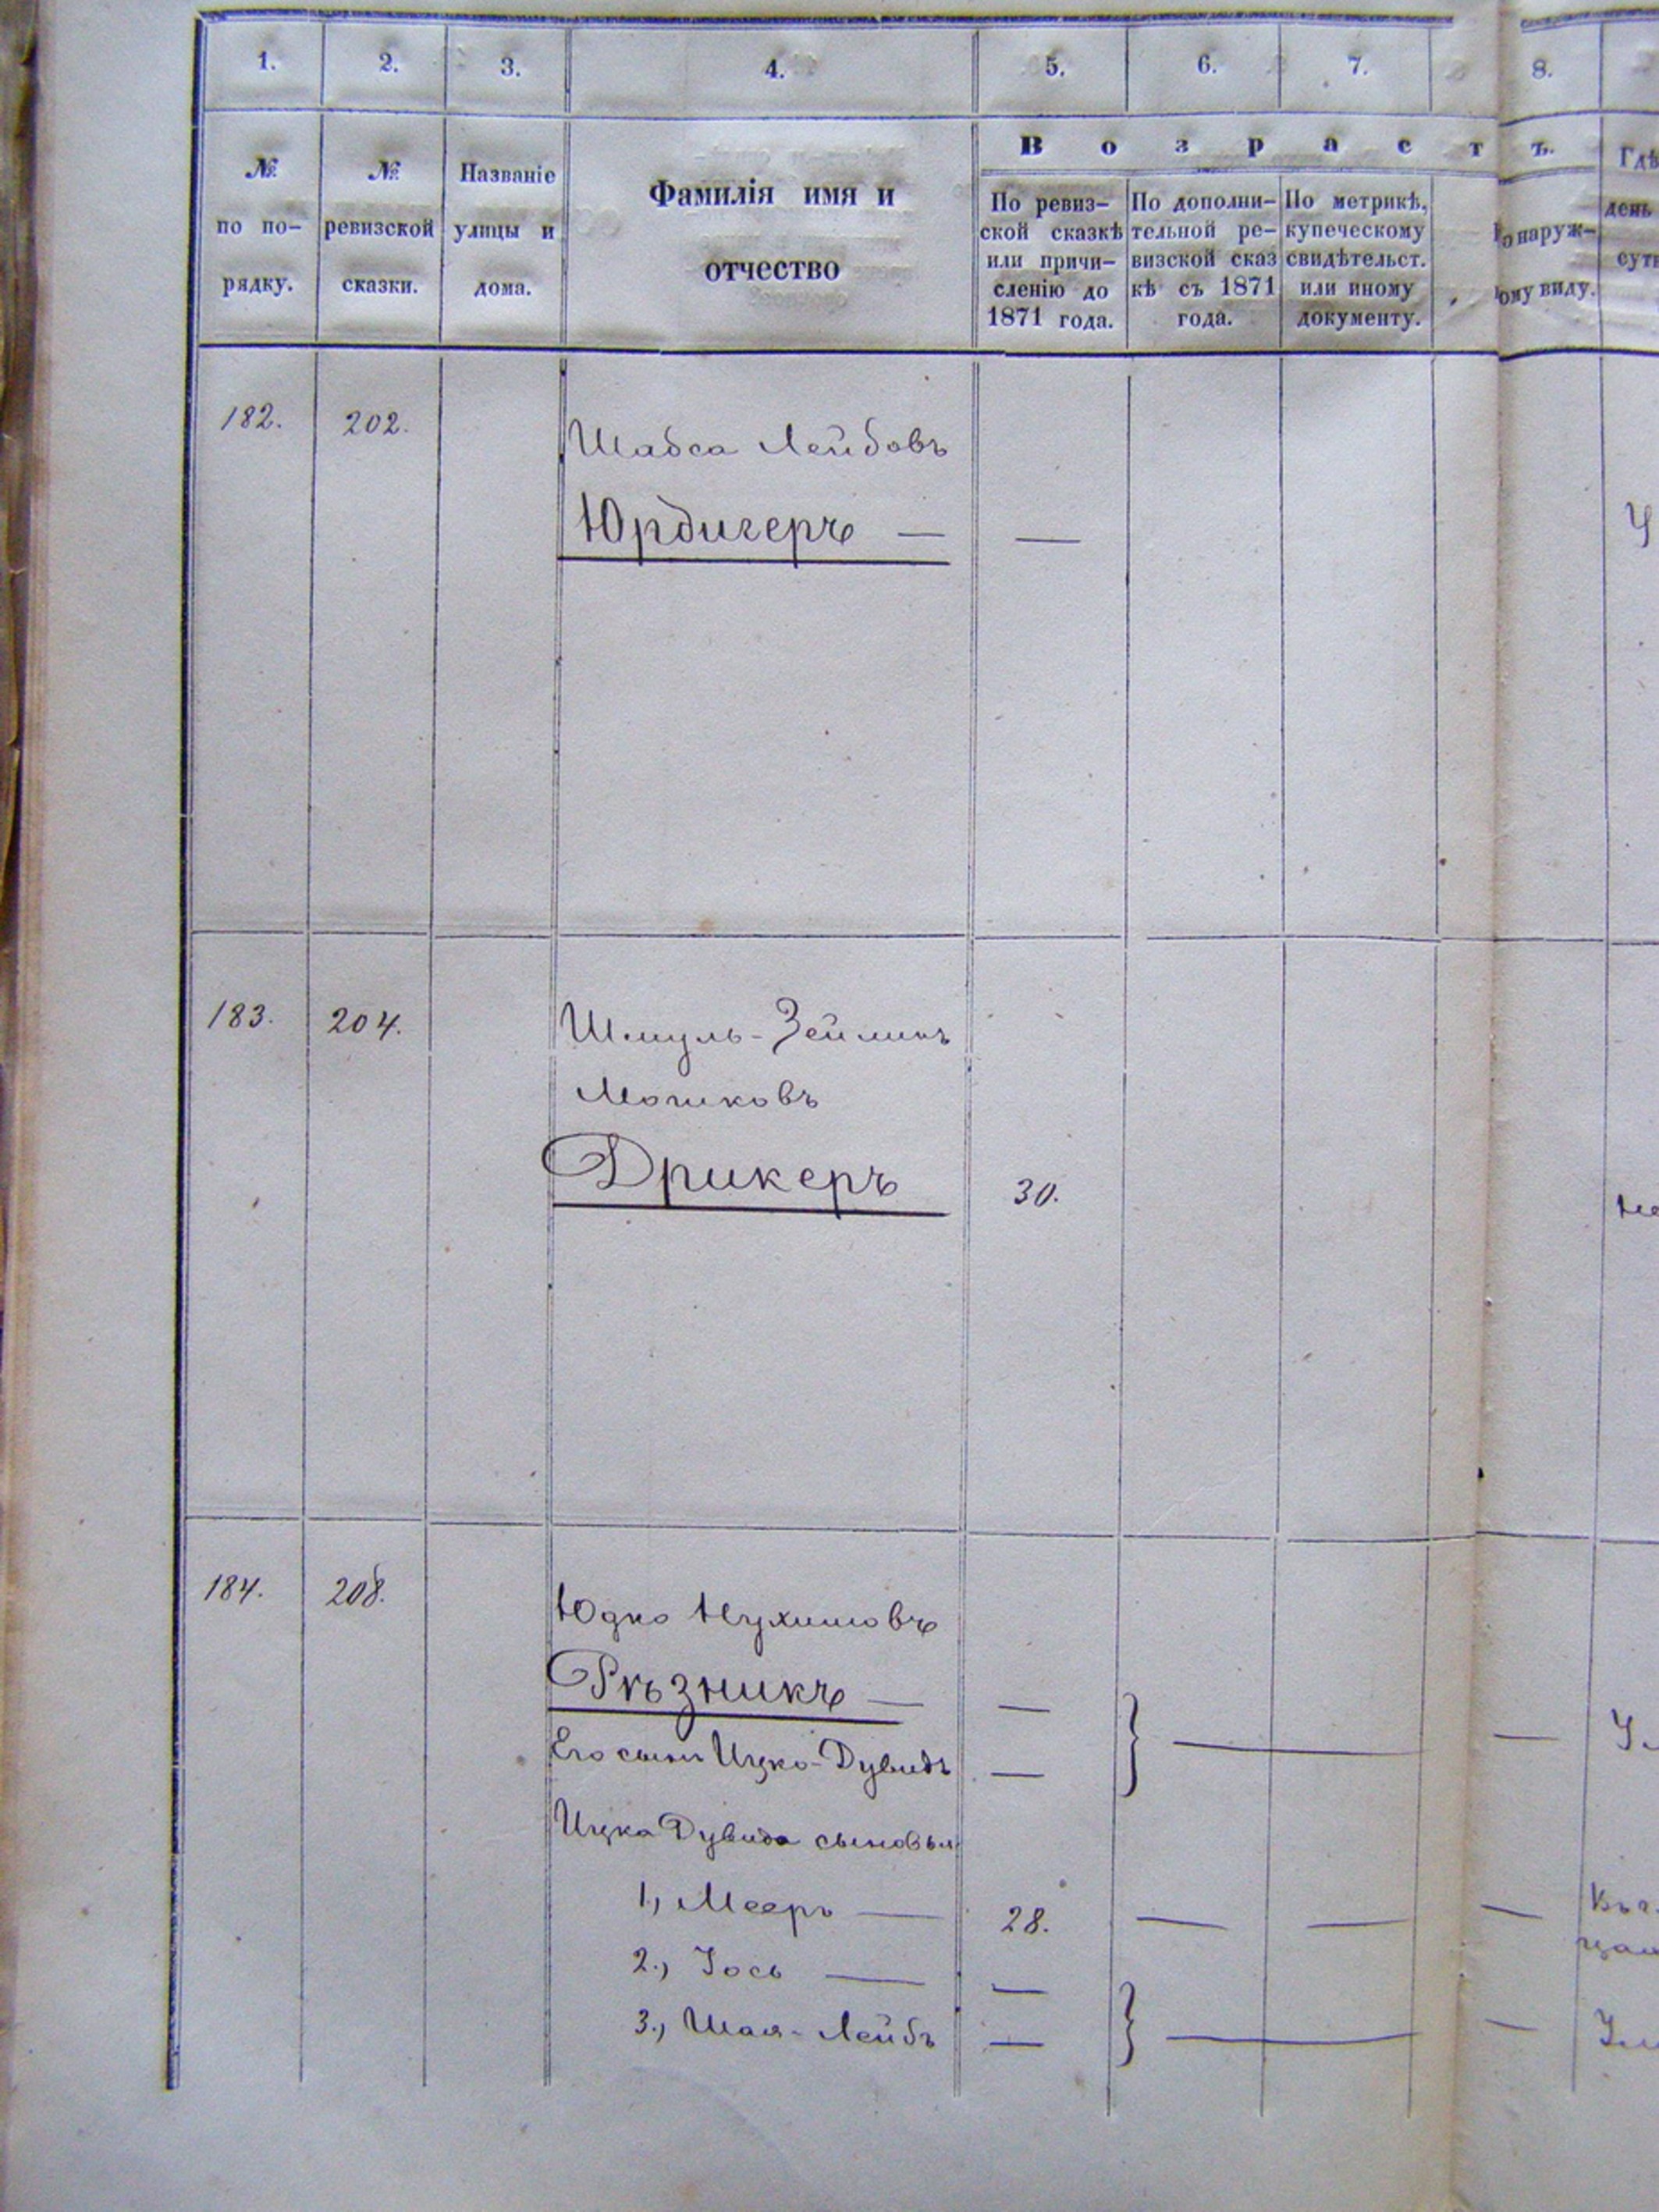 1. 2. 3. 4. 5. 6. 7. 8.
В о з р а с т ъ.
№ по по-
рядку.
№ ревизской
сказки.
Названіе
улицы и
дома.
Фамилія имя и
отчество
По ревиз-
ской сказкѣ
или причи-
сленію до
1871 года.
По дополни-
тельной ре-
визской сказ
кѣ съ 1871
года.
По метрикѣ,
купеческому
свидѣтельст.
или иному
документу.
наруж-
ному виду.
Гдѣ
день
182. 202. Шабса Лейбовъ
Юрдигеръ — —
183. 204. Шмуль-Зейликъ
Мошковъ
Дрикеръ 30.
184. 208. Юдко Нухимовъ
Рѣзникъ — —
Его сынъ Ицко-Дувидъ —
Ицка Дувида сыновья
1., Мееръ — 28. — — —
2., Іось — —
3., Шая-Лейбъ —